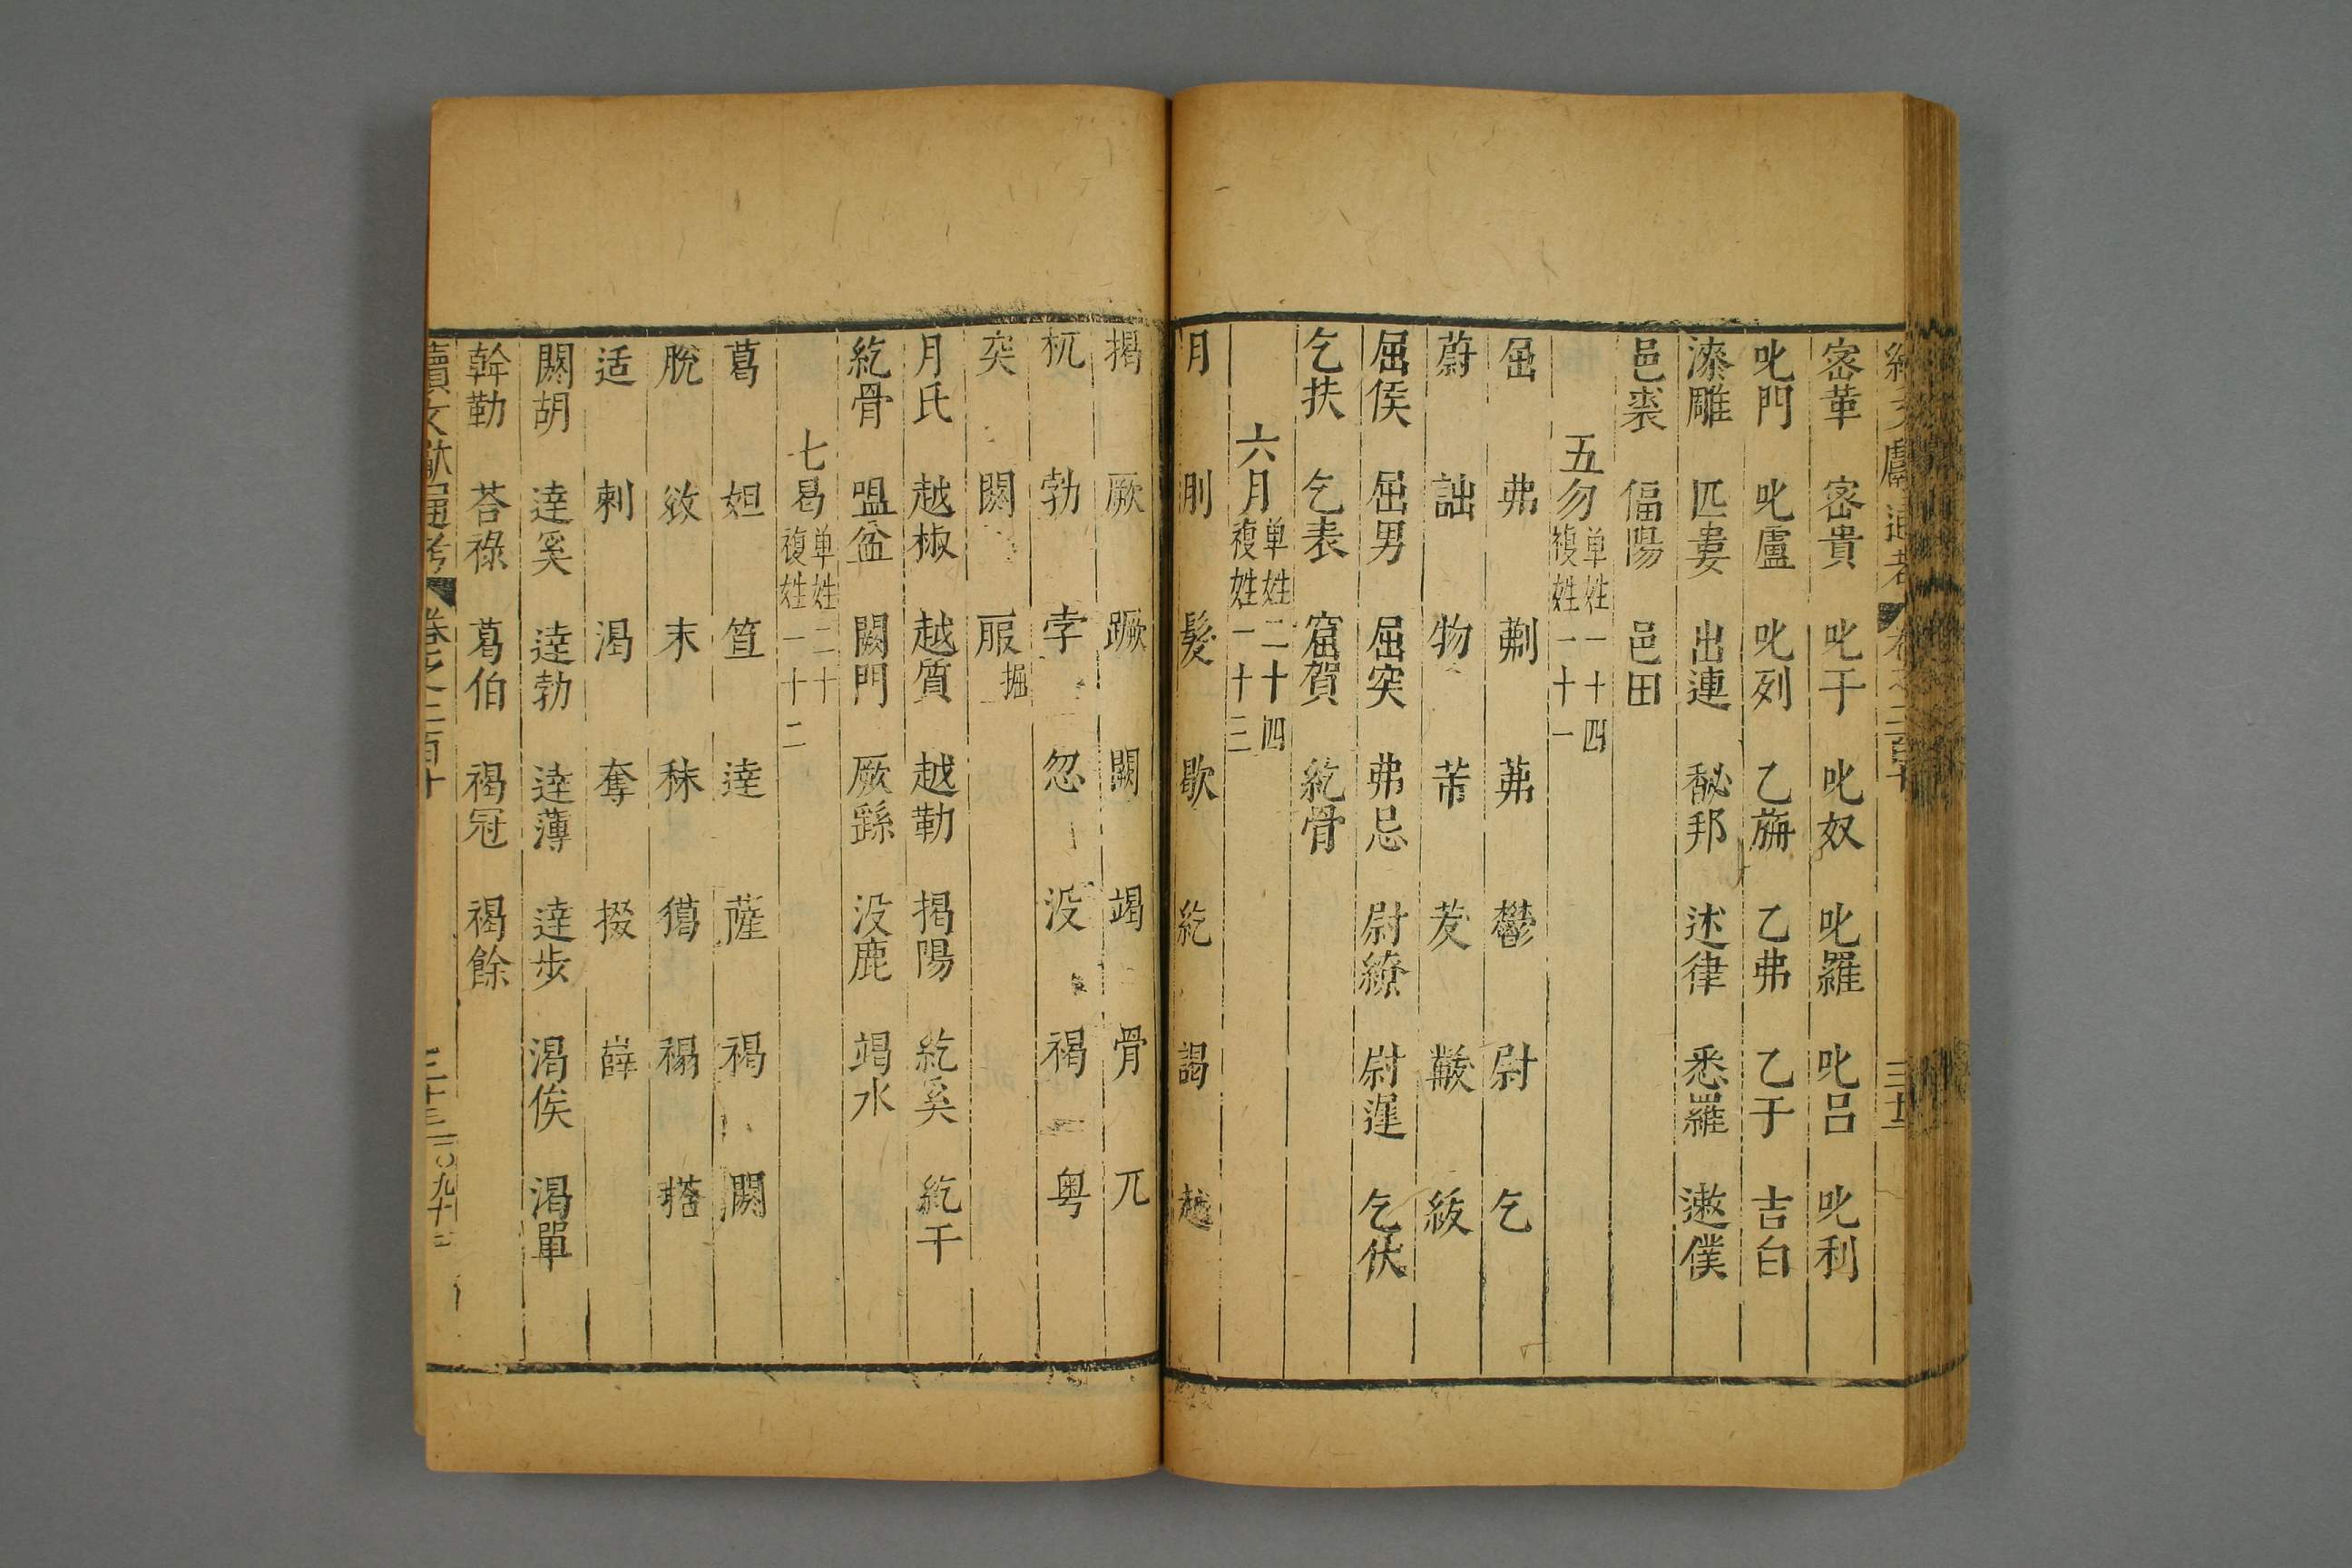 密革 密貴 叱干 叱奴 叱羅 叱呂 叱利
叱門 叱盧 叱列 乙旃 乙弗 乙于 吉白
漆雕 匹婁 出連 馝邦 述律 悉羅 遬僕
邑裘 偪陽 邑田
五勿 单姓一十四 複姓一十一
屈 弗 茀 鬱 尉 乞
蔚 詘 物 芾 茇 黻 紱
屈侯 屈男 屈突 弗忌 尉繚 尉遲 乞伏
乞扶 乞表 窟賀 紇骨
六月 单姓二十四 複姓一十三
月 刖 髮 歇 紇 謁 越
揭 厥 蹶 闕 竭 骨 兀
杌 勃 孛 忽 没 褐 粤
突 闕 掘
月氏 越椒 越質 越勒 揭陽 紇奚 紇干
紇骨 嗢盆 闕門 厥繇 没鹿 竭水
七曷 单姓二十 複姓一十二
葛 妲 笪 達 薩 褐 闕
脫 敚 末 秣 獦
适 剌 渴 奪 掇 薛
闕胡 達奚 達勃 達薄 達步 渴侯 渴單
斡勒 荅祿 葛伯 褐冠 褐餘
續文獻通考 卷之二百十 三十三